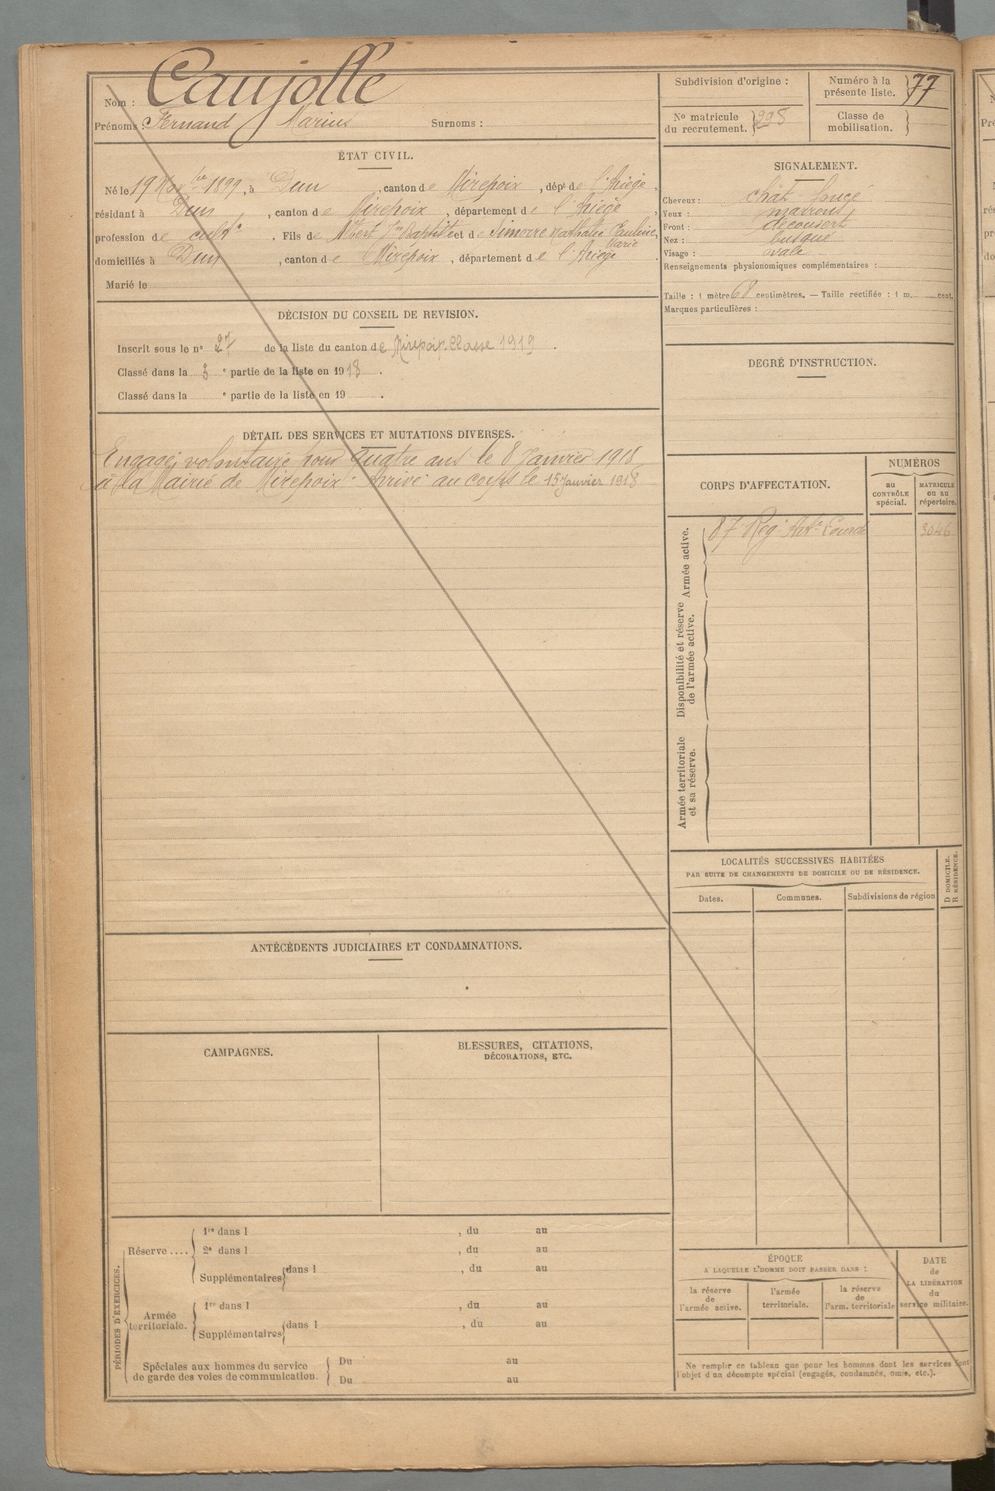 Nom : Caujolle
Prénoms : Fernand Marius Surnoms :
Subdivision d'origine :
Numéro à la présente liste. 77
No matricule du recrutement.
Classe de mobilisation.
ÉTAT CIVIL.
Né le 19 Nov bre 1899, à Dun, canton de Mirepoix, dépt de l'Ariège.
résidant à Dun, canton de Mirepoix, département de l'Ariège,
profession de cultr. Fils de Albert Jn Baptiste et de Simorre Nathalie Pauline, Marie
domiciliés à Dun, canton de Mirepoix, département de l'Ariège.
Marié le
SIGNALEMENT.
Cheveux : chât foncé
Yeux : marrons
Front : découvert
Nez : busqué
Visage : ovale
Renseignements physionomiques complémentaires :
Taille : 1 mètre 68 centimètres. — Taille rectifiée : 1 m. cent.
Marques particulières :
DÉCISION DU CONSEIL DE REVISION.
Inscrit sous le no 27 de la liste du canton de Mirepoix Classe 1919.
Classé dans la 3 e partie de la liste en 1918.
Classé dans la e partie de la liste en 19 .
DEGRÉ D'INSTRUCTION.
DÉTAIL DES SERVICES ET MUTATIONS DIVERSES.
Engagé volontaire pour quatre ans le 8 Janvier 1918
à la Mairie de Mirepoix. Arrivé au corps le 15 Janvier 1918
CORPS D'AFFECTATION.
NUMÉROS
au CONTRÔLE spécial.
MATRICULE ou au répertoire.
Armée active.
87 Rég. Artie Lourde 3046
Disponibilité et réserve de l'armée active.
Armée territoriale et sa réserve.
LOCALITÉS SUCCESSIVES HABITÉES
PAR SUITE DE CHANGEMENTS DE DOMICILE OU DE RÉSIDENCE.
Dates. Communes. Subdivisions de région
D DOMICILE.
R RÉSIDENCE.
ANTÉCÉDENTS JUDICIAIRES ET CONDAMNATIONS.
CAMPAGNES.
BLESSURES, CITATIONS,
DÉCORATIONS, ETC.
PÉRIODES D'EXERCICES.
Réserve ....
1re dans l , du au
2e dans l , du au
Supplémentaires dans l , du au
Armée territoriale.
1re dans l , du au
Supplémentaires dans l , du au
Spéciales aux hommes du service
de garde des voies de communication.
Du au
Du au
ÉPOQUE
A LAQUELLE L'HOMME DOIT PASSER DANS :
la réserve de l'armée active.
l'armée territoriale.
la réserve de l'arm. territoriale
DATE de LA LIBÉRATION du service militaire.
Ne remplir ce tableau que pour les hommes dont les services font
l'objet d'un décompte spécial (engagés, condamnés, omis, etc.).